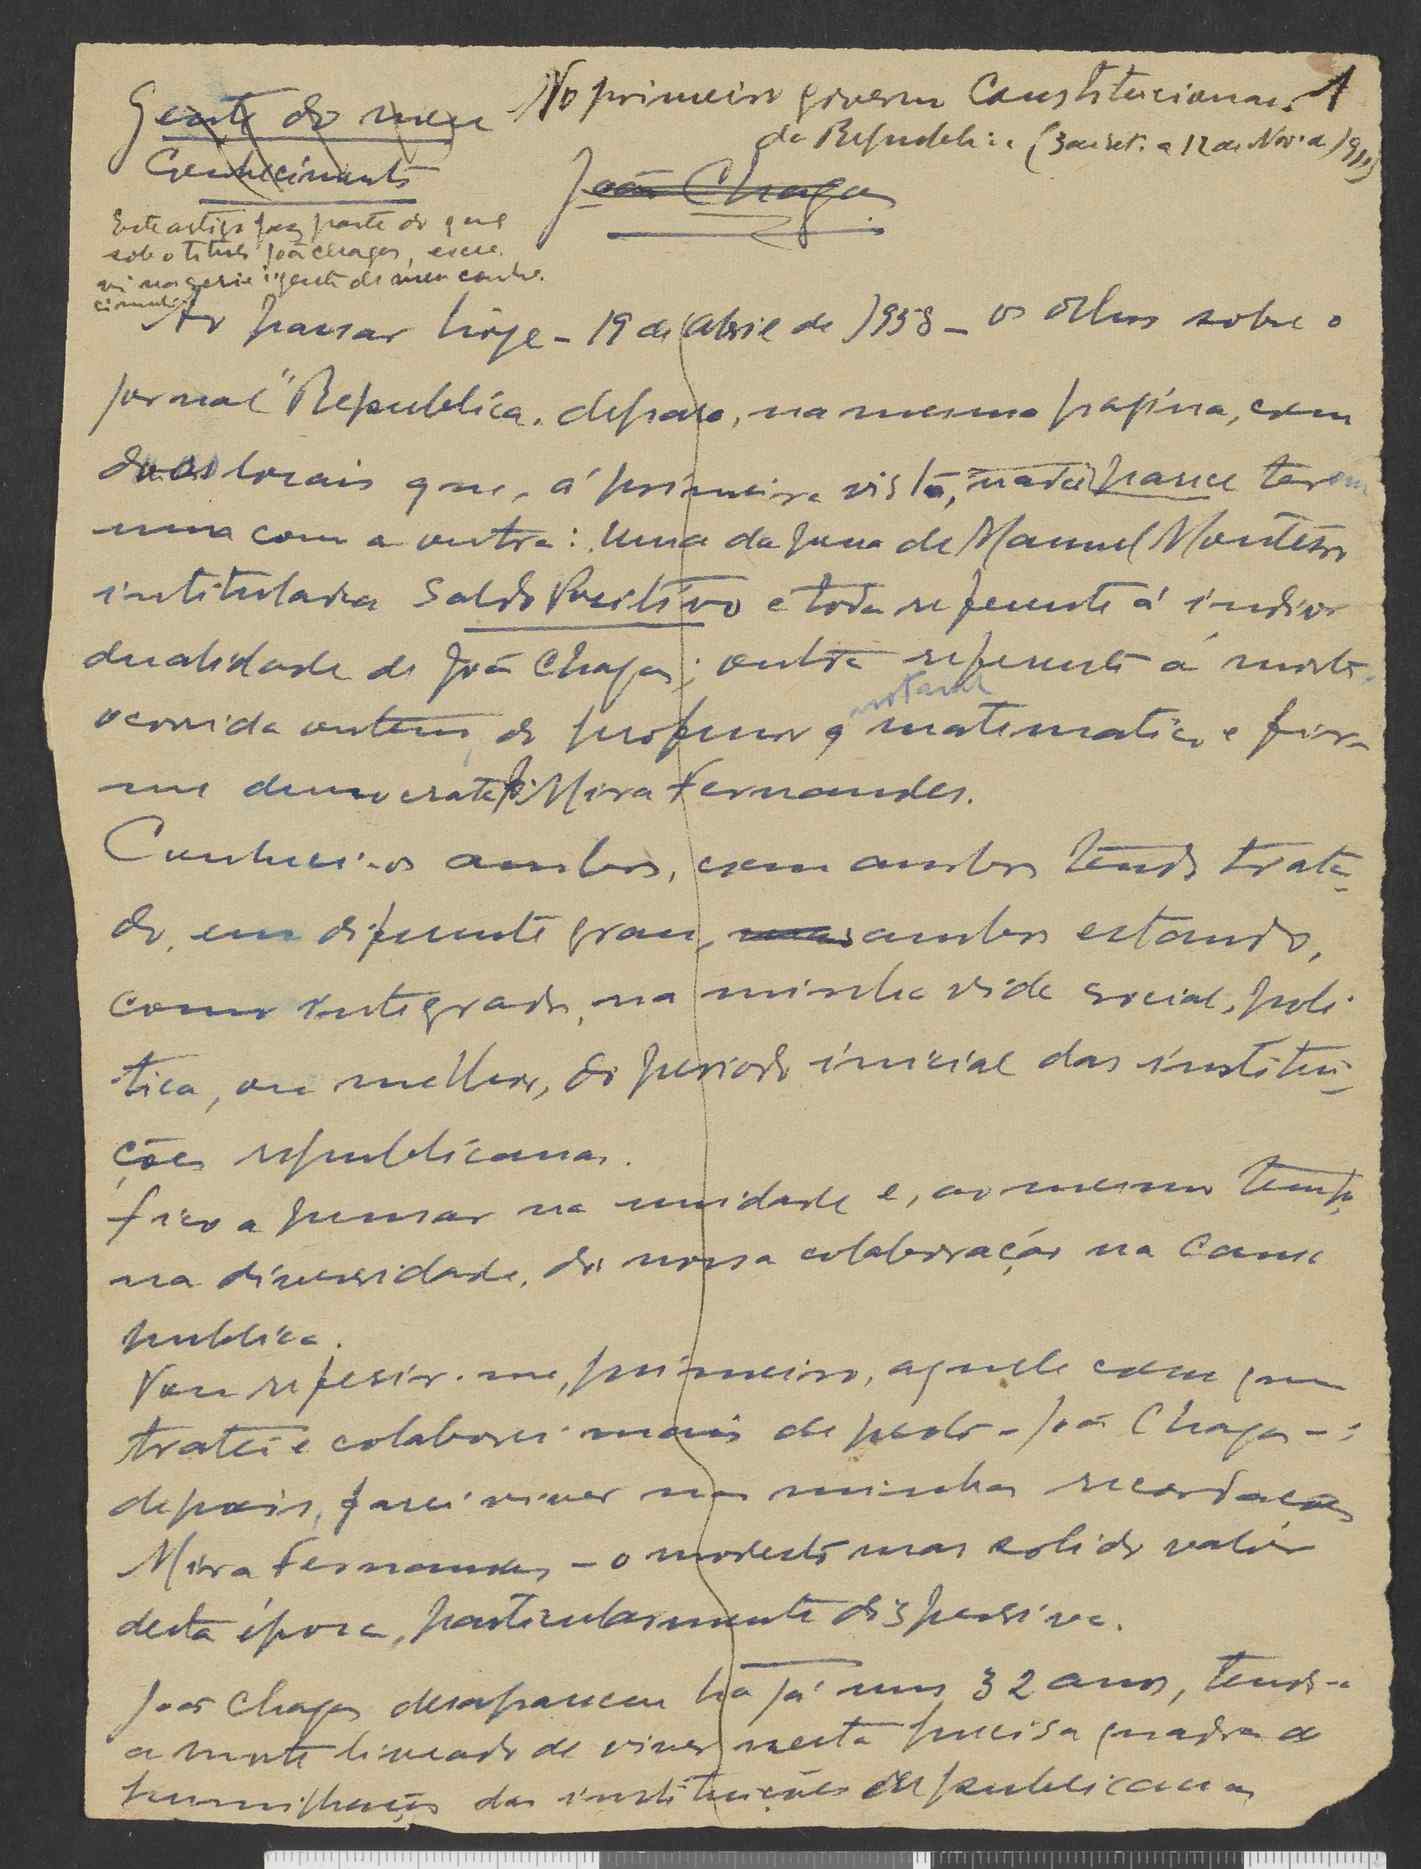 Gente do meu
Conhecimento
No primeiro governo Constitucional 1
da Republica (3 de Set. a 12 de Nov. de 1911)
João Chagas
Este artigo faz parte do que
sob o titulo João Chagas, escre
vi na serie "gente do meu conhe
cimento
Ao passar hoje - 19 de Abril de 1958 - os olhos sobre o
jornal "Republica, deparo, na mesma pagina, com
duas locais que, á primeira vista, nada parece terem
uma com a outra: Uma da pena de Manuel Monteiro
intitulada Saldo Positivo e toda referente á indivi
dualidade de João Chagas; outra referente á morte,
ocorrida ontem, do professor e notavel matematico e fir-
me democrata Mira Fernandes.
Conheci-os ambos, com ambos tendo trata-
do, em diferente grau, mas ambos estando,
como integrado, na minha vida social, poli-
tica, ou melhor, do periodo inicial das institui-
ções republicanas.
Fico a pensar na unidade e, ao mesmo tempo,
na diversidade, da nossa colaboração na causa
publica.
Vou referir-me, primeiro, aquele com quem
tratei e colaborei mais de perto - João Chagas -;
depois, farei viver nas minhas recordações
Mira Fernandes - o modesto mas solido valor
desta época, particularmente dispersiva.
João Chagas desapareceu há já uns 32 anos, tendo-o
a morte livrado de viver nesta precisa quadra de
humilhação das instituições republicanas